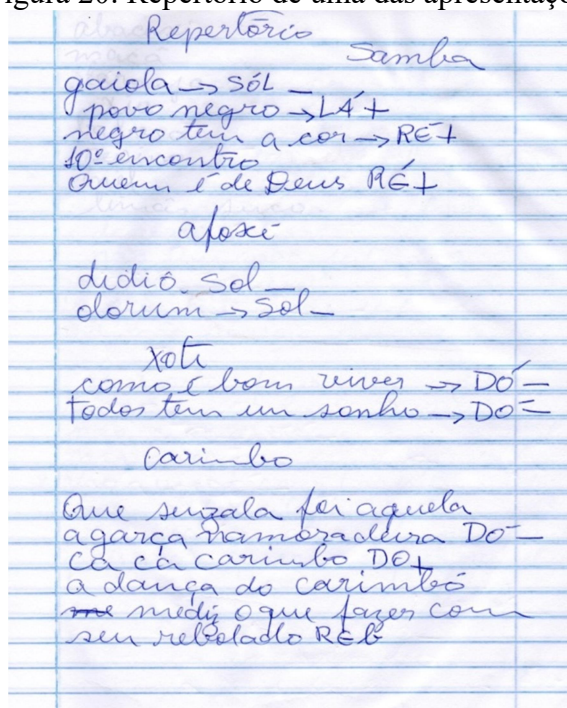 igura 20: Repertório de uma das apresentaçõ
Repertório
Samba
gaiola → SóL _
povo negro → LÁ +
negro tem a cor → RÉ +
10º encontro
Quem é de Deus RÉ +
afoxé
didiô. Sol _
dorum → Sol _
xote
como é bom viver → DÓ _
todos tem um sonho → DO _
Carimbo
Que senzala foi aquela
a garça namoradeira DO _
ca ca carimbo DO +
a dança do carimbó
me mediz o que fazer com
seu rebolado RÉ b